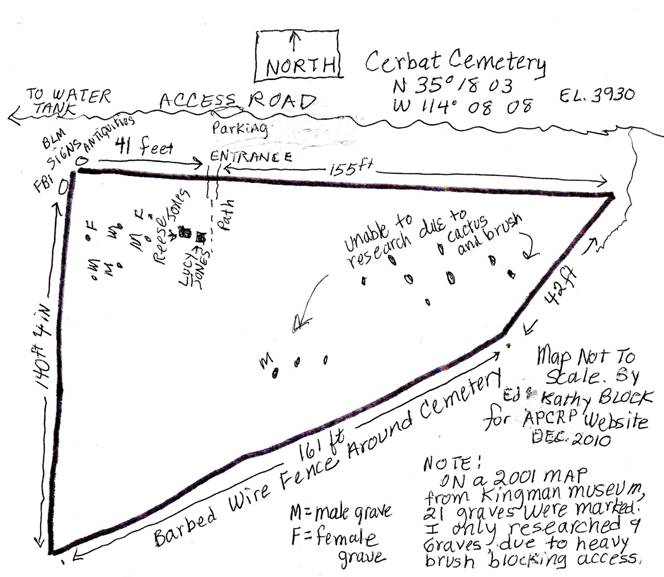 NORTH
Cerbat Cemetery
N 35° 18 03
W 114° 08 08
EL. 3930
TO WATER
TANK
ACCESS ROAD
Parking
BLM
SIGNS
ANTIQUITIES
FBI
41 feet
ENTRANCE
155ft
Path
F
M
F
M
M
M
Reese
JONES
LUCY
JONES
unable to
research due to
cactus
and brush
140ft 4 iN
42ft
M
161 ft
Barbed Wire Fence Around Cemetery
Map Not To
Scale. By
Ed & Kathy BLOCK
for APCRP Website
DEC. 2010
M=male grave
F=female
grave
NOTE!
ON a 2001 MAP
from Kingman museum,
21 graves were marked.
I only researched 9
Graves, due to heavy
brush blocking access.